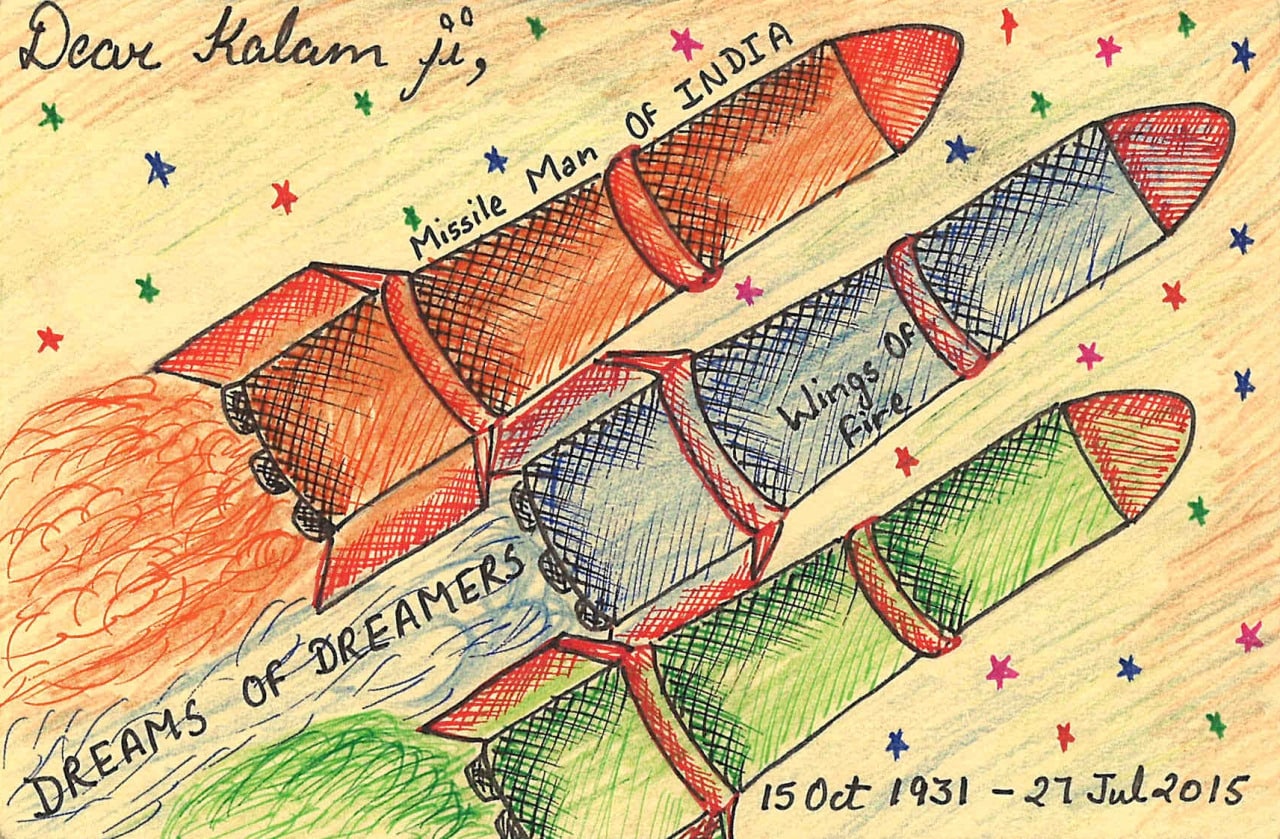 Dear Kalam ji,
Missile Man OF INDIA
Wings OF
Fire
DREAMS OF DREAMERS
15 Oct 1931 - 27 Jul 2015